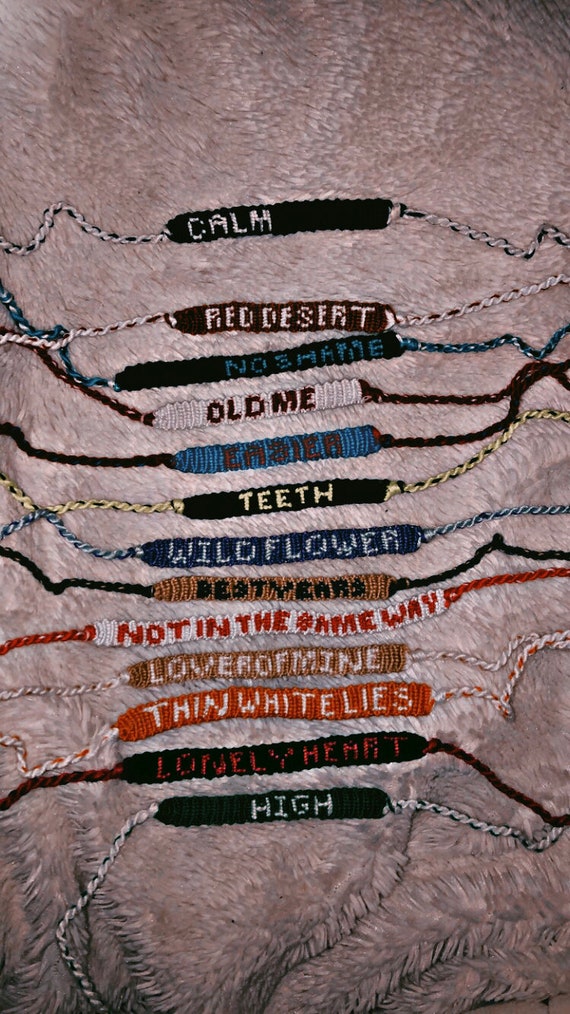 CALM
RED DESERT
NO SHAME
OLD ME
EASIER
TEETH
WILDFLOWER
BEST YEARS
NOT IN THE SAME WAY
LOVER OF MINE
THIN WHITE LIES
LONELY HEART
HIGH